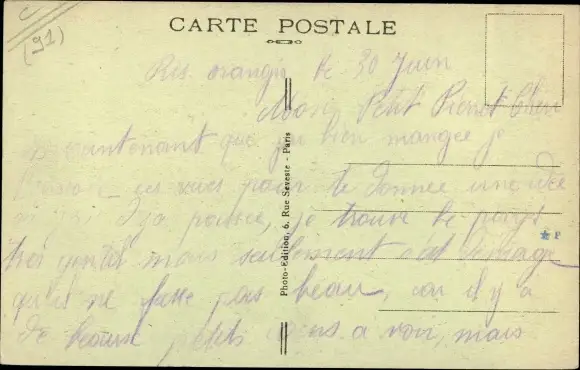 (91)
CARTE POSTALE
Ris orangis le 30 Juin
Mon Petit Pierrot Cheri
Maintenant que j'ai bien mangée je
ces vues pour te donnée une idée
je trouve le pays
tres gentil mais seullement c'est domage
qu'il ne fasse pas beau, car il y a
de beaux petits coins a voir, mais
Photo-Edition, 6, Rue Séveste - Paris
F